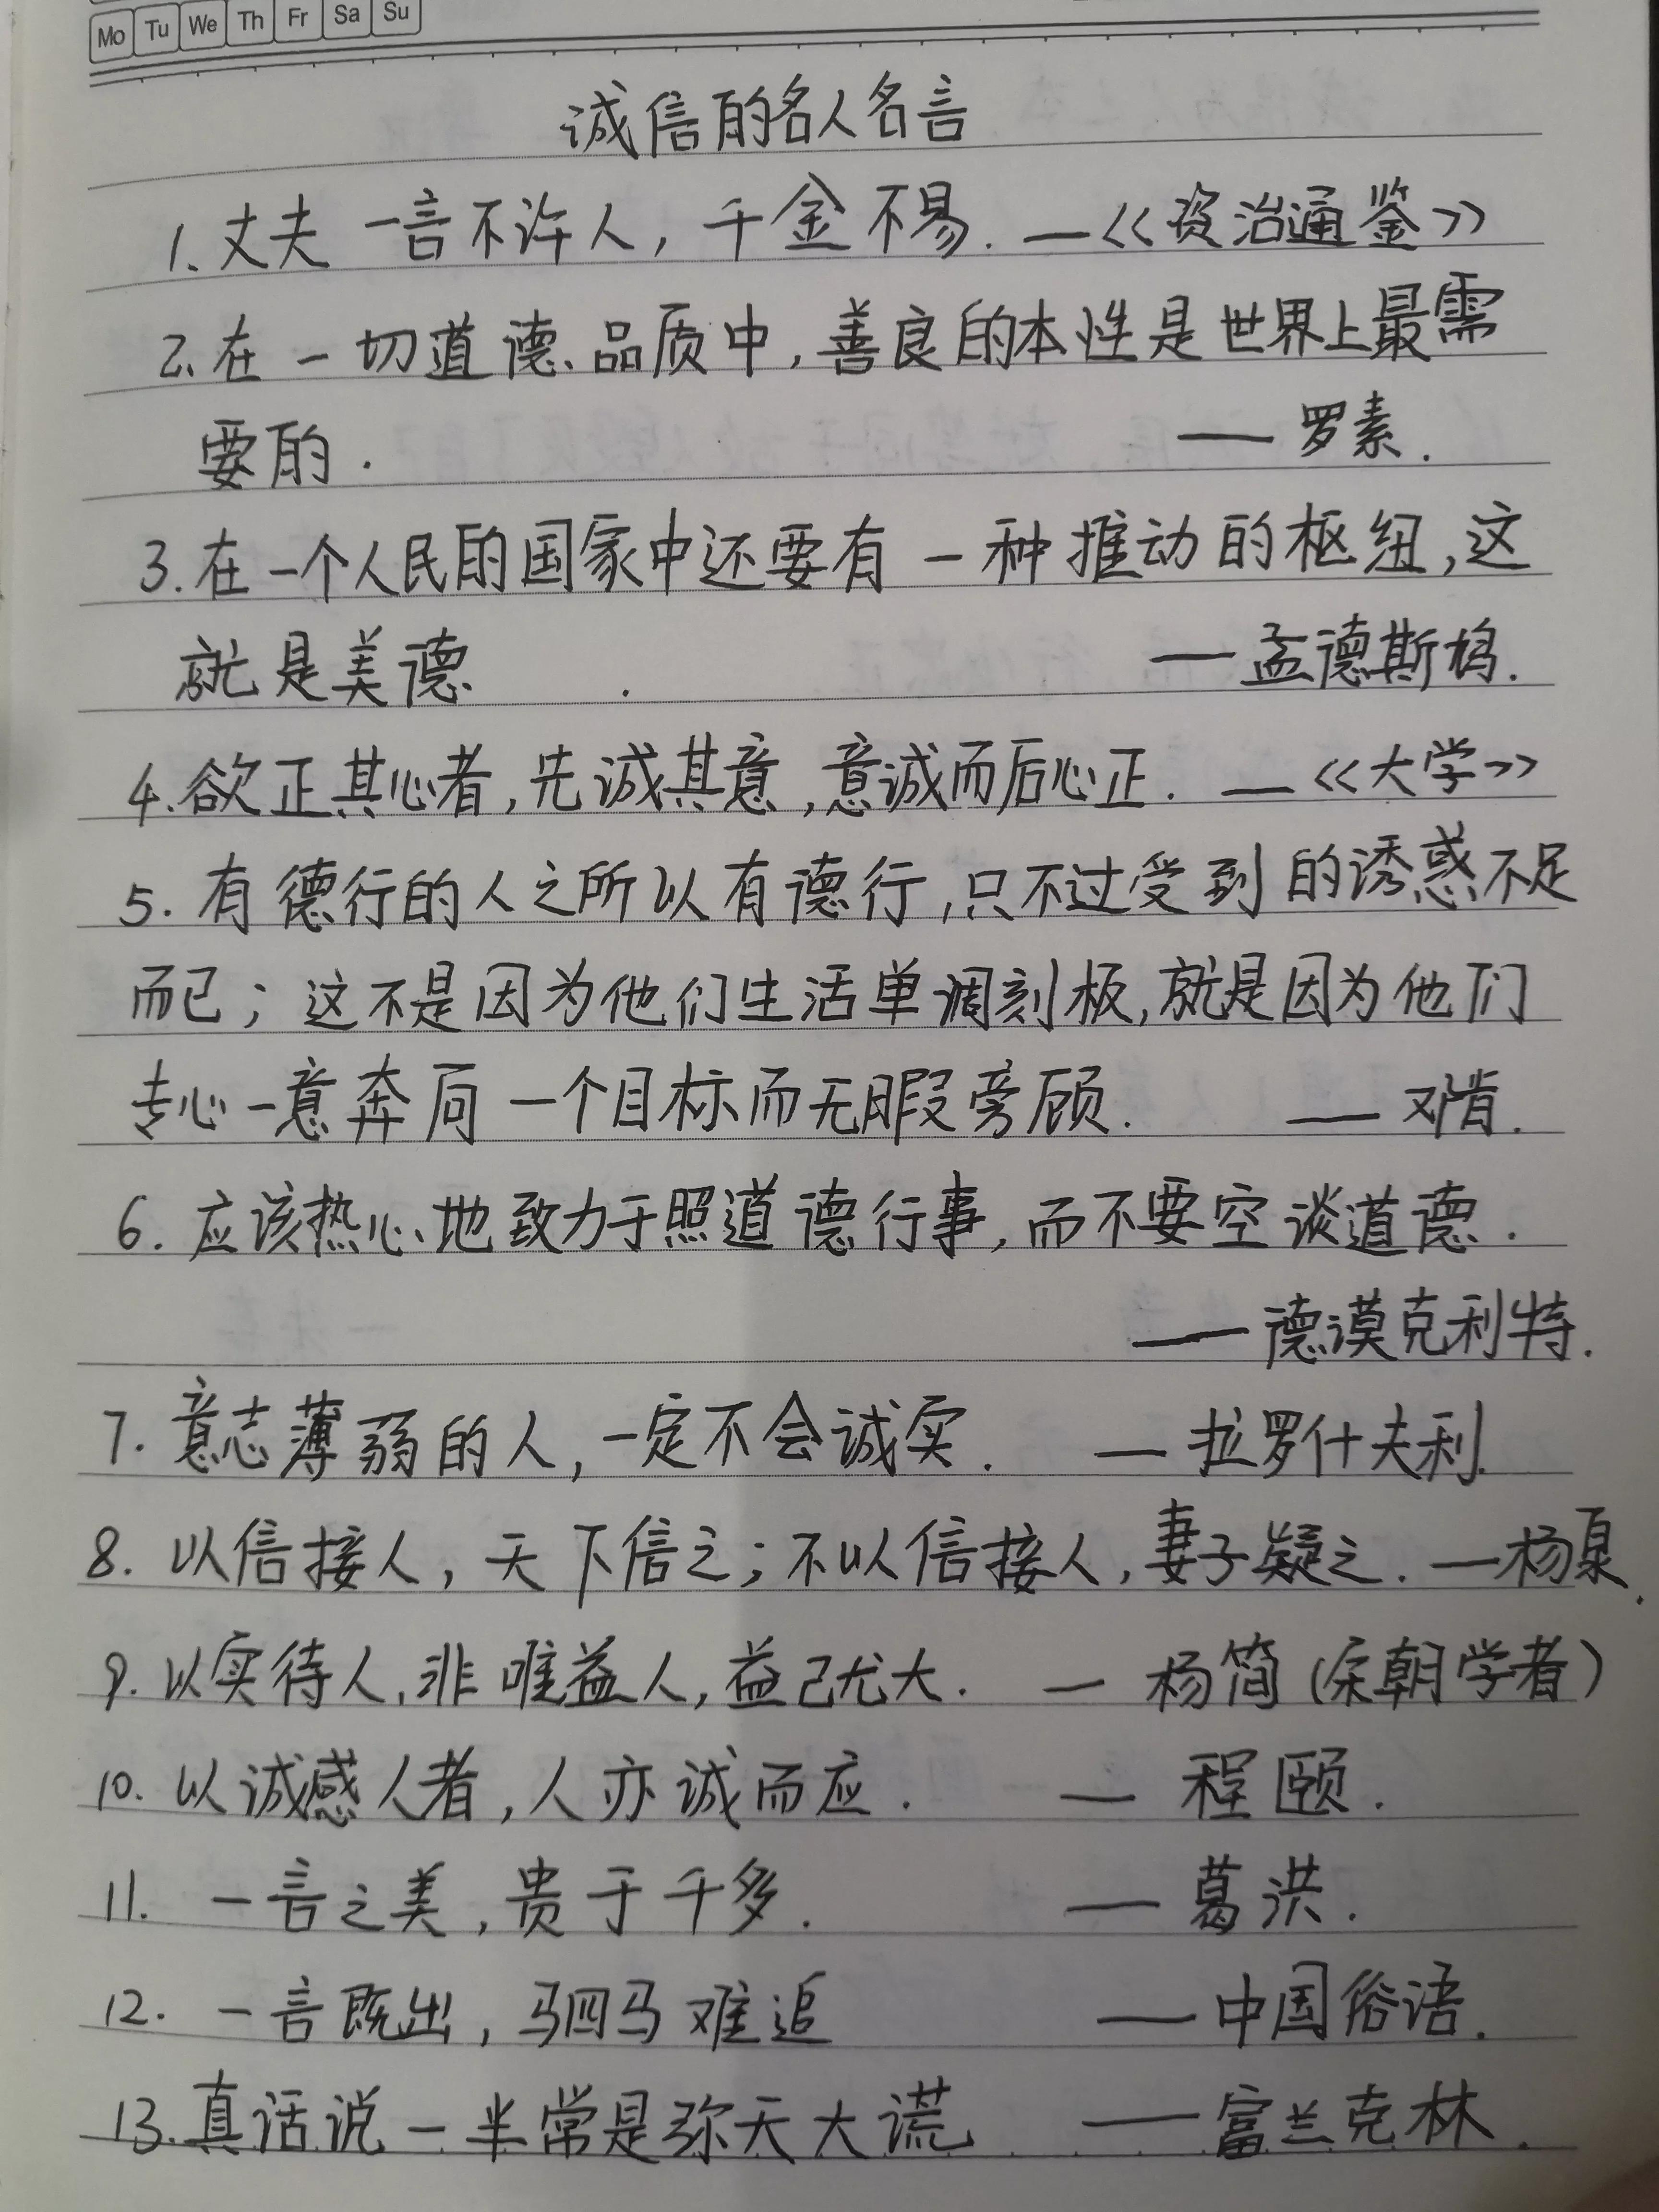 Mo Tu We Th Fr Sa Su
诚信的名人名言
1.丈夫一言不许人,千金不易.—《资治通鉴》
2.在一切道德品质中,善良的本性是世界上最需
要的. ——罗素.
3.在一个人民的国家中还要有一种推动的枢纽,这
就是美德. —孟德斯鸠.
4.欲正其心者,先诚其意,意诚而后心正.—《大学》
5.有德行的人之所以有德行,只不过受到的诱惑不足
而已;这不是因为他们生活单调刻板,就是因为他们
专心一意奔向一个目标而无暇旁顾. ——邓肯.
6.应该热心地致力于照道德行事,而不要空谈道德.
——德谟克利特.
7.意志薄弱的人,一定不会诚实. —拉罗什夫利.
8.以信接人,天下信之;不以信接人,妻子疑之.—杨泉.
9.以实待人,非唯益人,益己尤大. —杨简(宋朝学者)
10.以诚感人者,人亦诚而应. —程颐.
11.一言之美,贵于千多. —葛洪.
12.一言既出,驷马难追 ——中国俗语.
13.真话说一半常是弥天大谎 ——富兰克林.